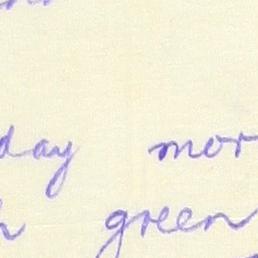 day mor
green